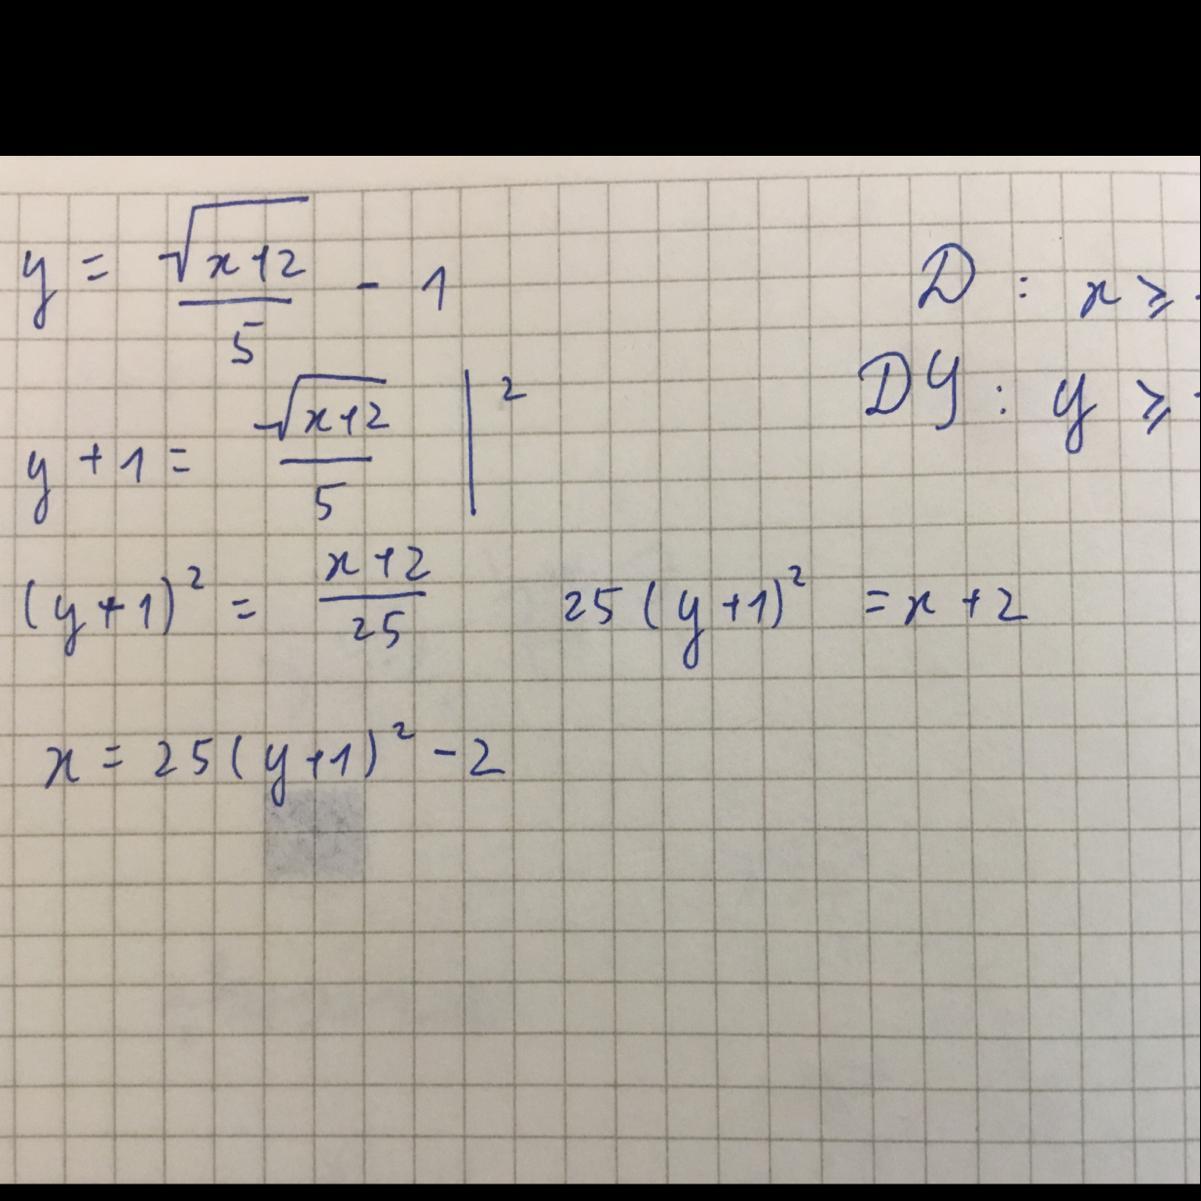 y = √(x+2)/5 - 1
D : x ⩾ -
y + 1 = √(x+2)/5 |²
DY : y ⩾ -
(y+1)² = (x+2)/25   25(y+1)² = x+2
x = 25(y+1)² - 2